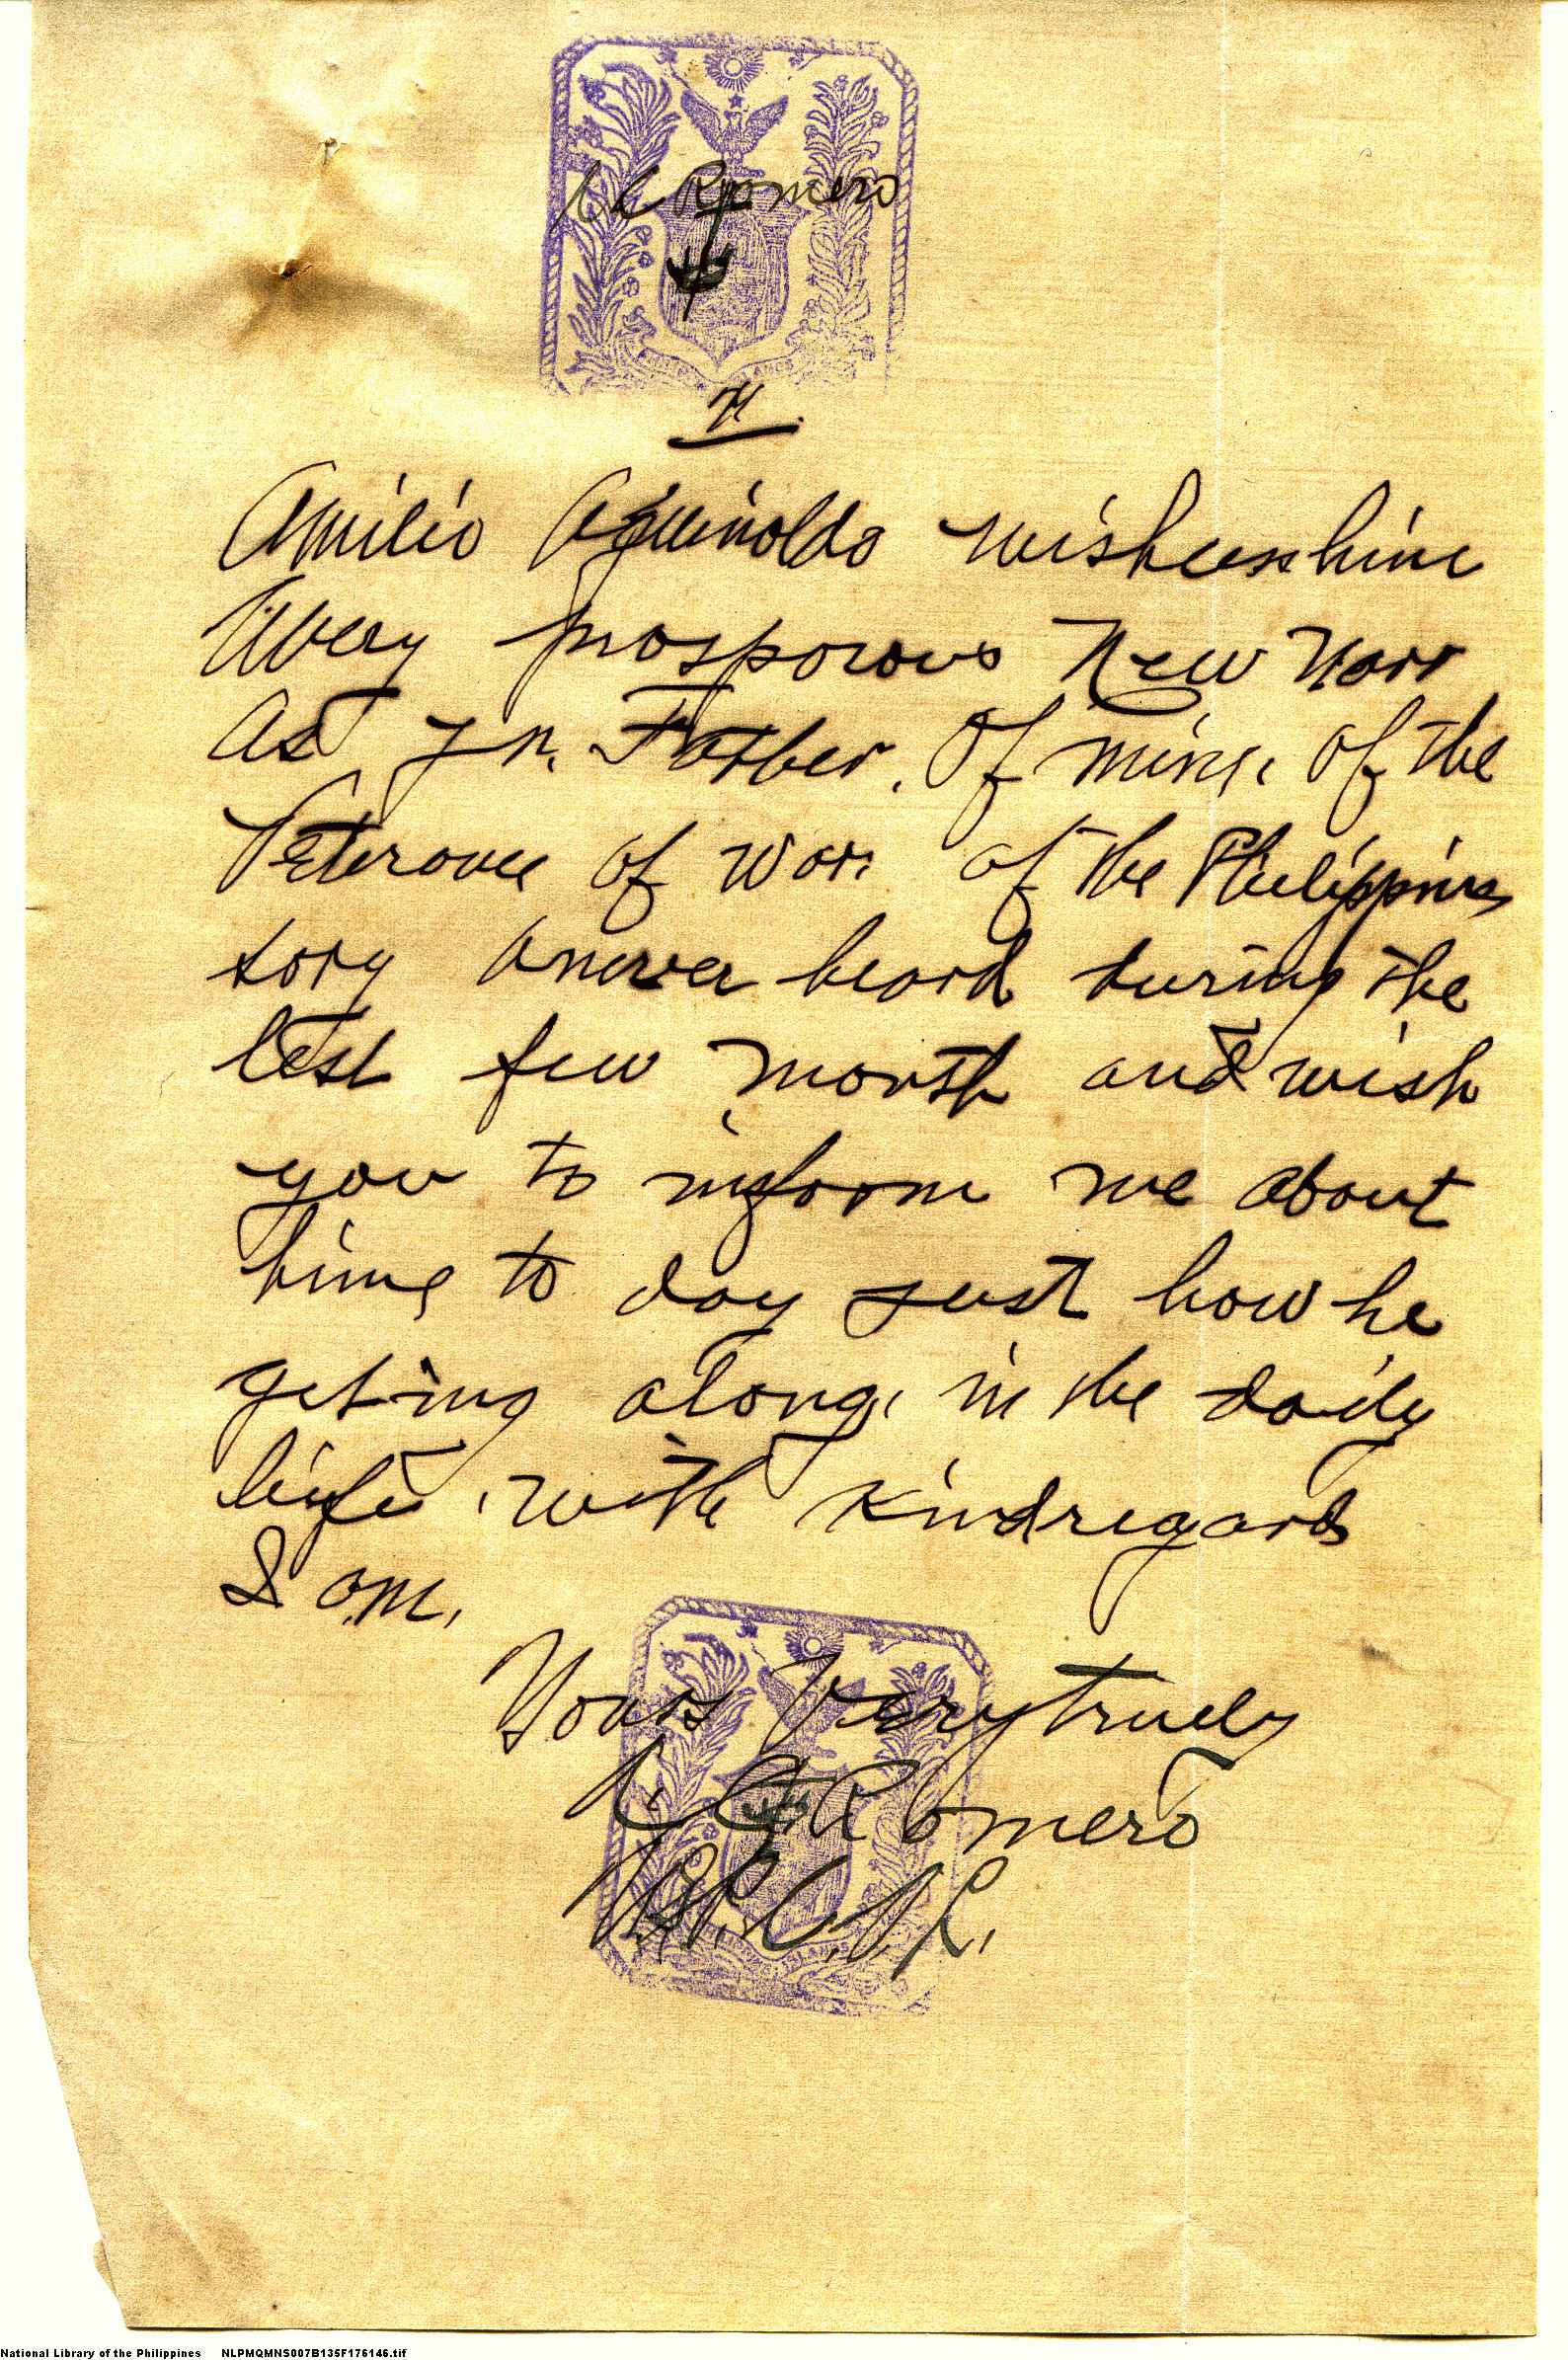 Romero
Amilio Aguinaldo wishes him
A very prosporous New Year
As Father. Of mine. Of the
of War. of the Philippines
story heard during the
last few month and wish
you to inform me about
him to day just how he
geting along, in the daily
life. with kind regards
I am,
Yours Very truely
Romero
National Library of the Philippines NLPMQMNS007B135F176146.tif